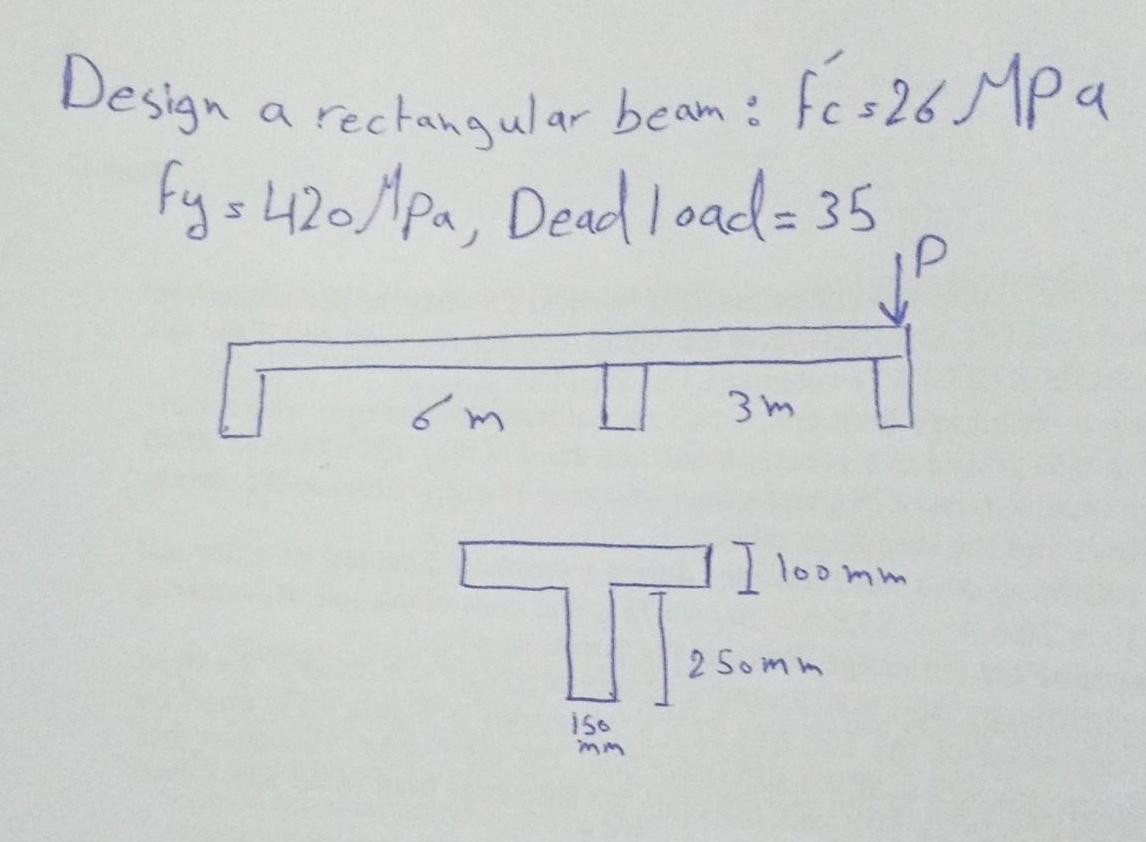 Design a rectangular beam: f'c = 26 MPa
fy = 420 MPa, Dead load = 35
P
6 m
3 m
100 mm
250 mm
150
mm